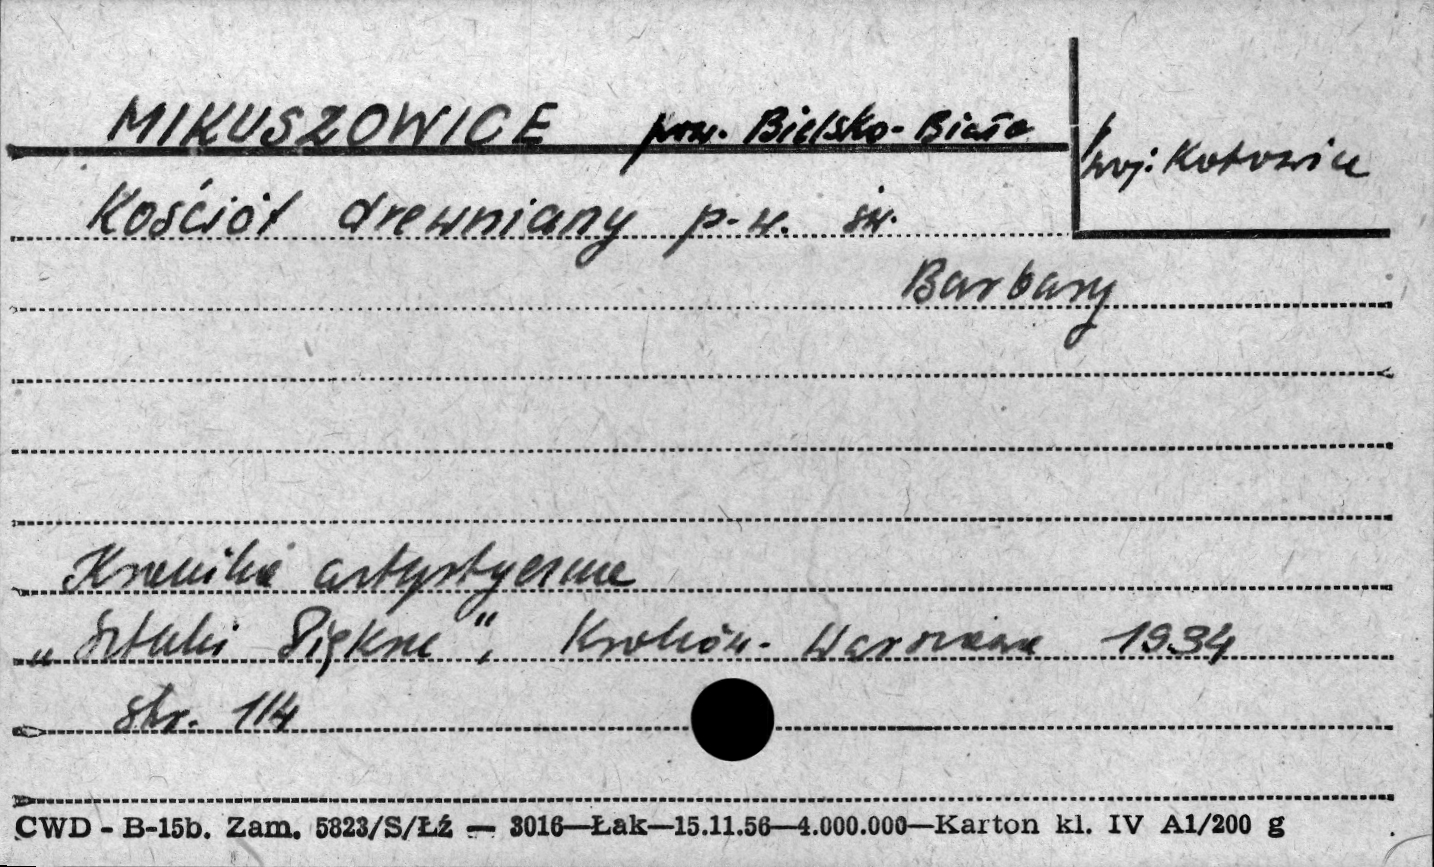 MIKUSZOWICE pow. Bielsko-Biała
woj: Katowice
Kościół drewniany p.w. św.
Barbary
Kronika artystyczna
„Sztuki Piękne", Kraków-Warszawa 1934
str. 114
CWD - B-15b. Zam. 5823/S/Łź — 3016—Łak—15.11.56—4.000.000—Karton kl. IV A1/200 g